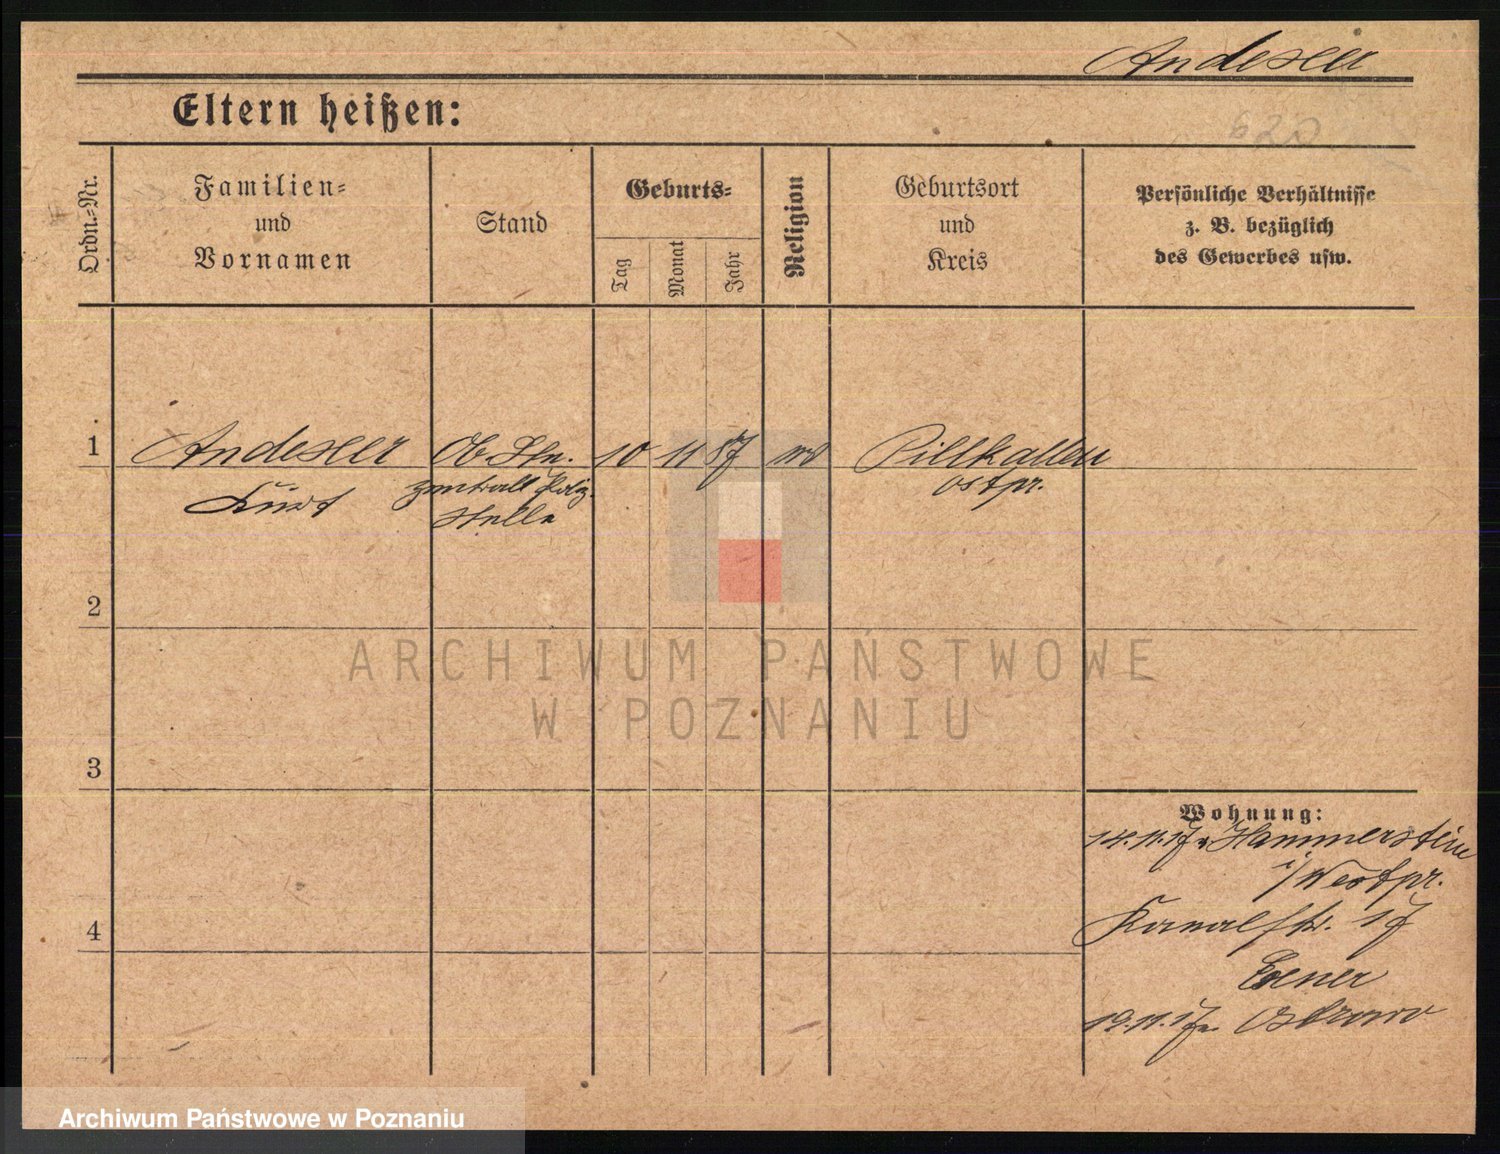 Andexer
620
Eltern heißen:
Ordn.-Nr.
Familien-
und
Vornamen
Stand
Geburts-
Tag
Monat
Jahr
Religion
Geburtsort
und
Kreis
Persönliche Verhältnisse
z. B. bezüglich
des Gewerbes usw.
1
Andexer
Kurt
Ob. Stn.
zentrall Poliz.
stelle
10 11 87
Pillkallen
Ostpr.
2
ARCHIWUM PAŃSTWOWE
W POZNANIU
3
Wohnung:
14.11.17 v Hammerstein
i/Westpr.
Kanalstr. 17
Exner
19.11.17 n. Ostrowo
4
Archiwum Państwowe w Poznaniu